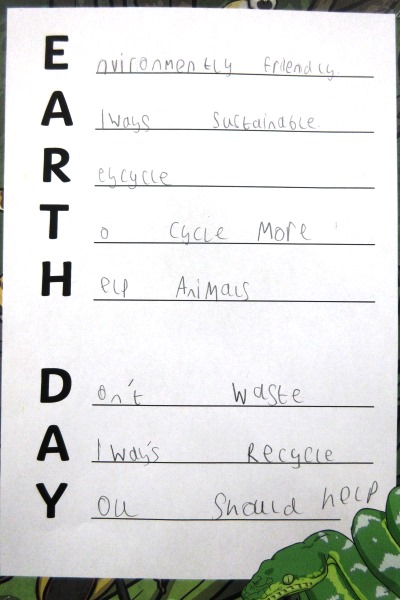 Environmently friendly.
Always Sustainable.
Reycycle
To cycle More
Help Animals
Don't Waste
Alway's Recycle
You Should help